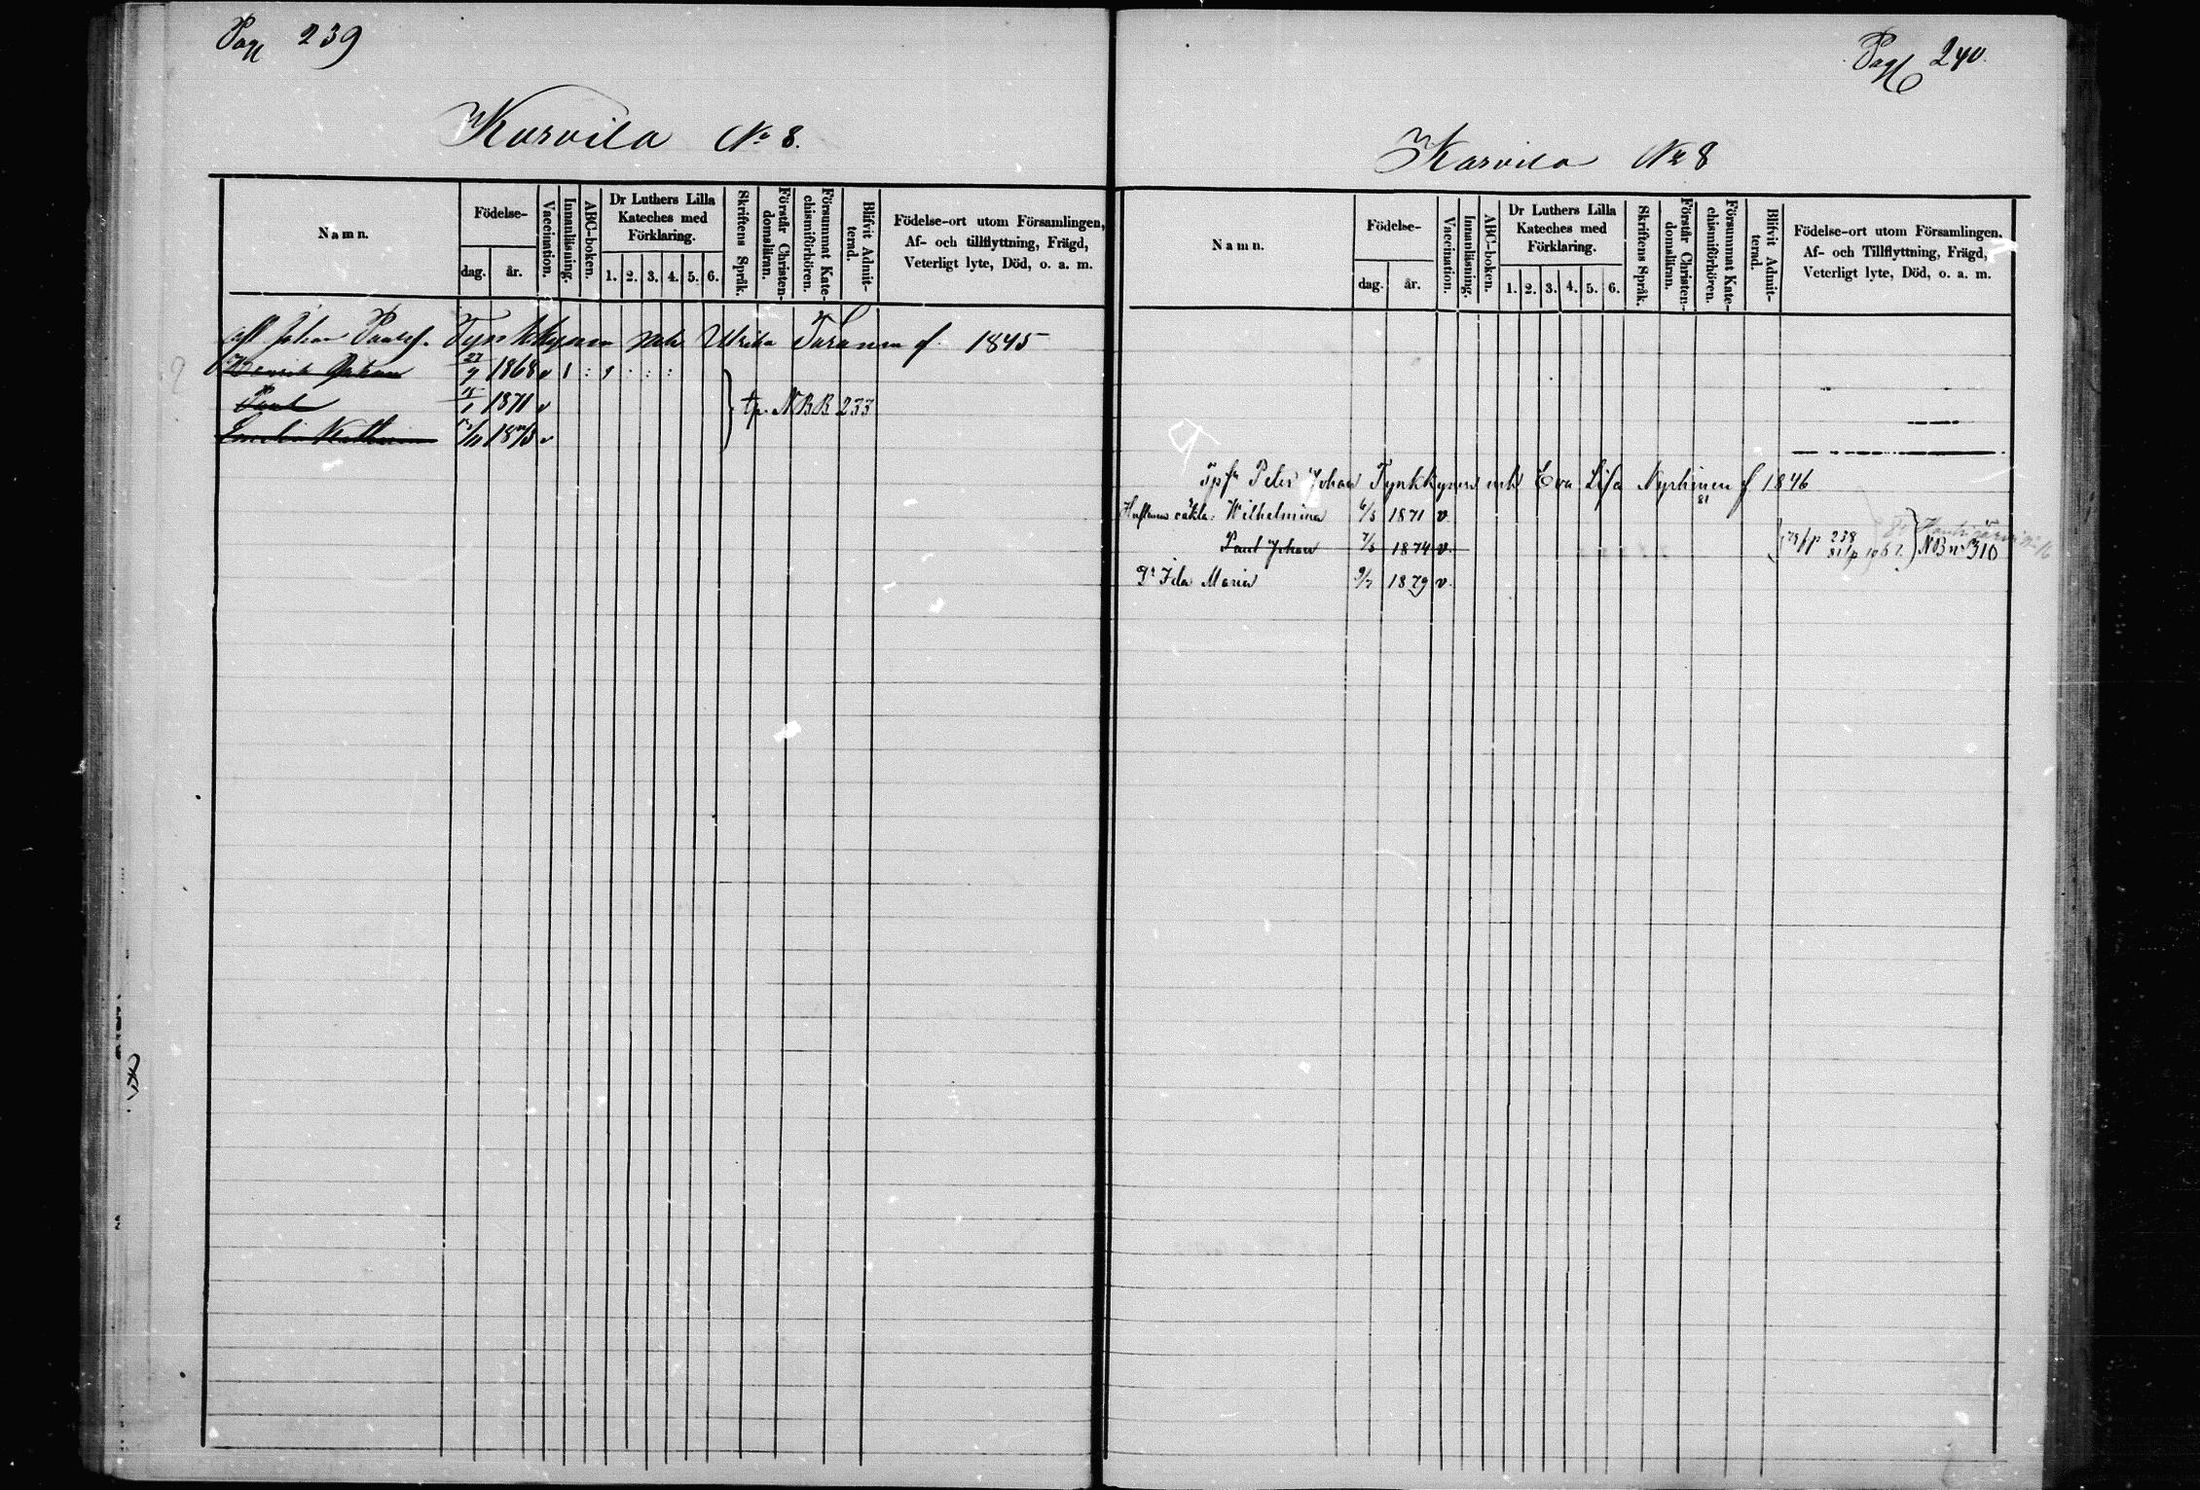 Pag 239
Karvila No 8.
Namn.
Födelse-
dag. år.
Vaccination.
Innanläsning.
ABC-boken.
Dr Luthers Lilla Kateches med Förklaring.
1. 2. 3. 4. 5. 6.
Skriftens Språk.
Förstår Christen-domsläran.
Försummat Kate-chismiförhören.
Blifvit Admit-terad.
Födelse-ort utom Församlingen,
Af- och tillflyttning, Frägd,
Veterligt lyte, Död, o. a. m.
Johan Paulsf. Tynkkynen Ulrika f. 1845
Henrik Johan 27/9 1868 v
Paul 1871 v
1873 v
tp. NBB 233
Pag 240.
Karvila No 8
Namn.
Födelse-
dag. år.
Vaccination.
Innanläsning.
ABC-boken.
Dr Luthers Lilla Kateches med Förklaring.
1. 2. 3. 4. 5. 6.
Skriftens Språk.
Förstår Christen-domsläran.
Försummat Kate-chismiförhören.
Blifvit Admit-terad.
Födelse-ort utom Församlingen.
Af- och Tillflyttning, Frägd,
Veterligt lyte, Död, o. a. m.
Peter Johan Tynkkynen Eva Lisa f 1846
Wilhelmina 1871 v.
Paul Johan 7/5 1874 v.
Ida Maria 1879 v.
238
310